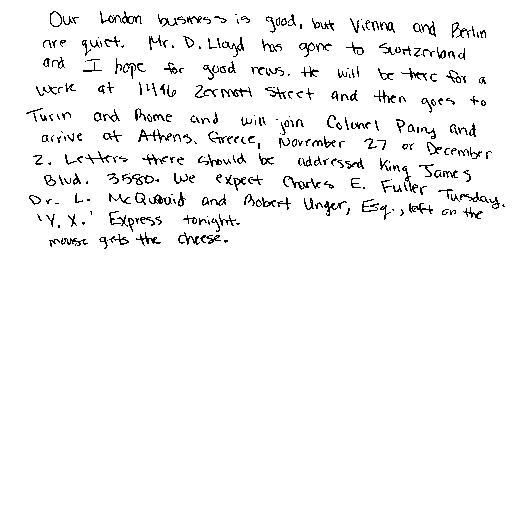 Our London business is good, but Vienna and Berlin
are quiet. Mr. D. Lloyd has gone to Switzerland
and I hope for good news. He will be there for a
week at 1446 Zermott Street and then goes to
Turin and Rome and will join Colonel Parry and
arrive at Athens. Greece, November 27 or December
2. Letters there should be addressed King James
Blvd. 3580. We expect Charles E. Fuller Tuesday.
Dr. L. McQuaid and Robert Unger, Esq., left on the
'Y. X.' Express tonight.
mouse gets the cheese.